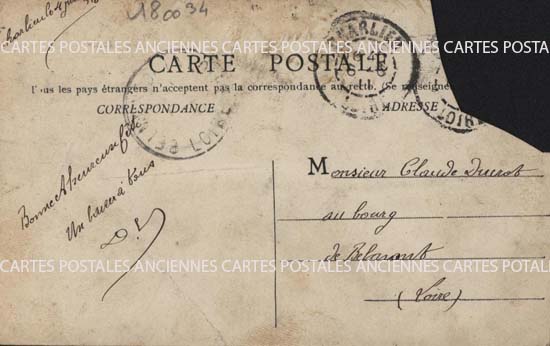 180034
Charlieu le
CARTE POSTALE
Tous les pays étrangers n'acceptent pas la correspondance au recto. (Se renseigne
CORRESPONDANCE
ADRESSE
CHARLIEU
LOIRE
BELM
LOIRE
Bonne & heureuse fête
Un baiser à tous
Monsieur Claude
au bourg
de Belmont
(Loire)
CARTES POSTALES ANCIENNES CARTES POSTALES ANCIENNES CARTES POSTALES
CARTES POSTALES ANCIENNES CARTES POSTALES ANCIENNES CARTES POTALES